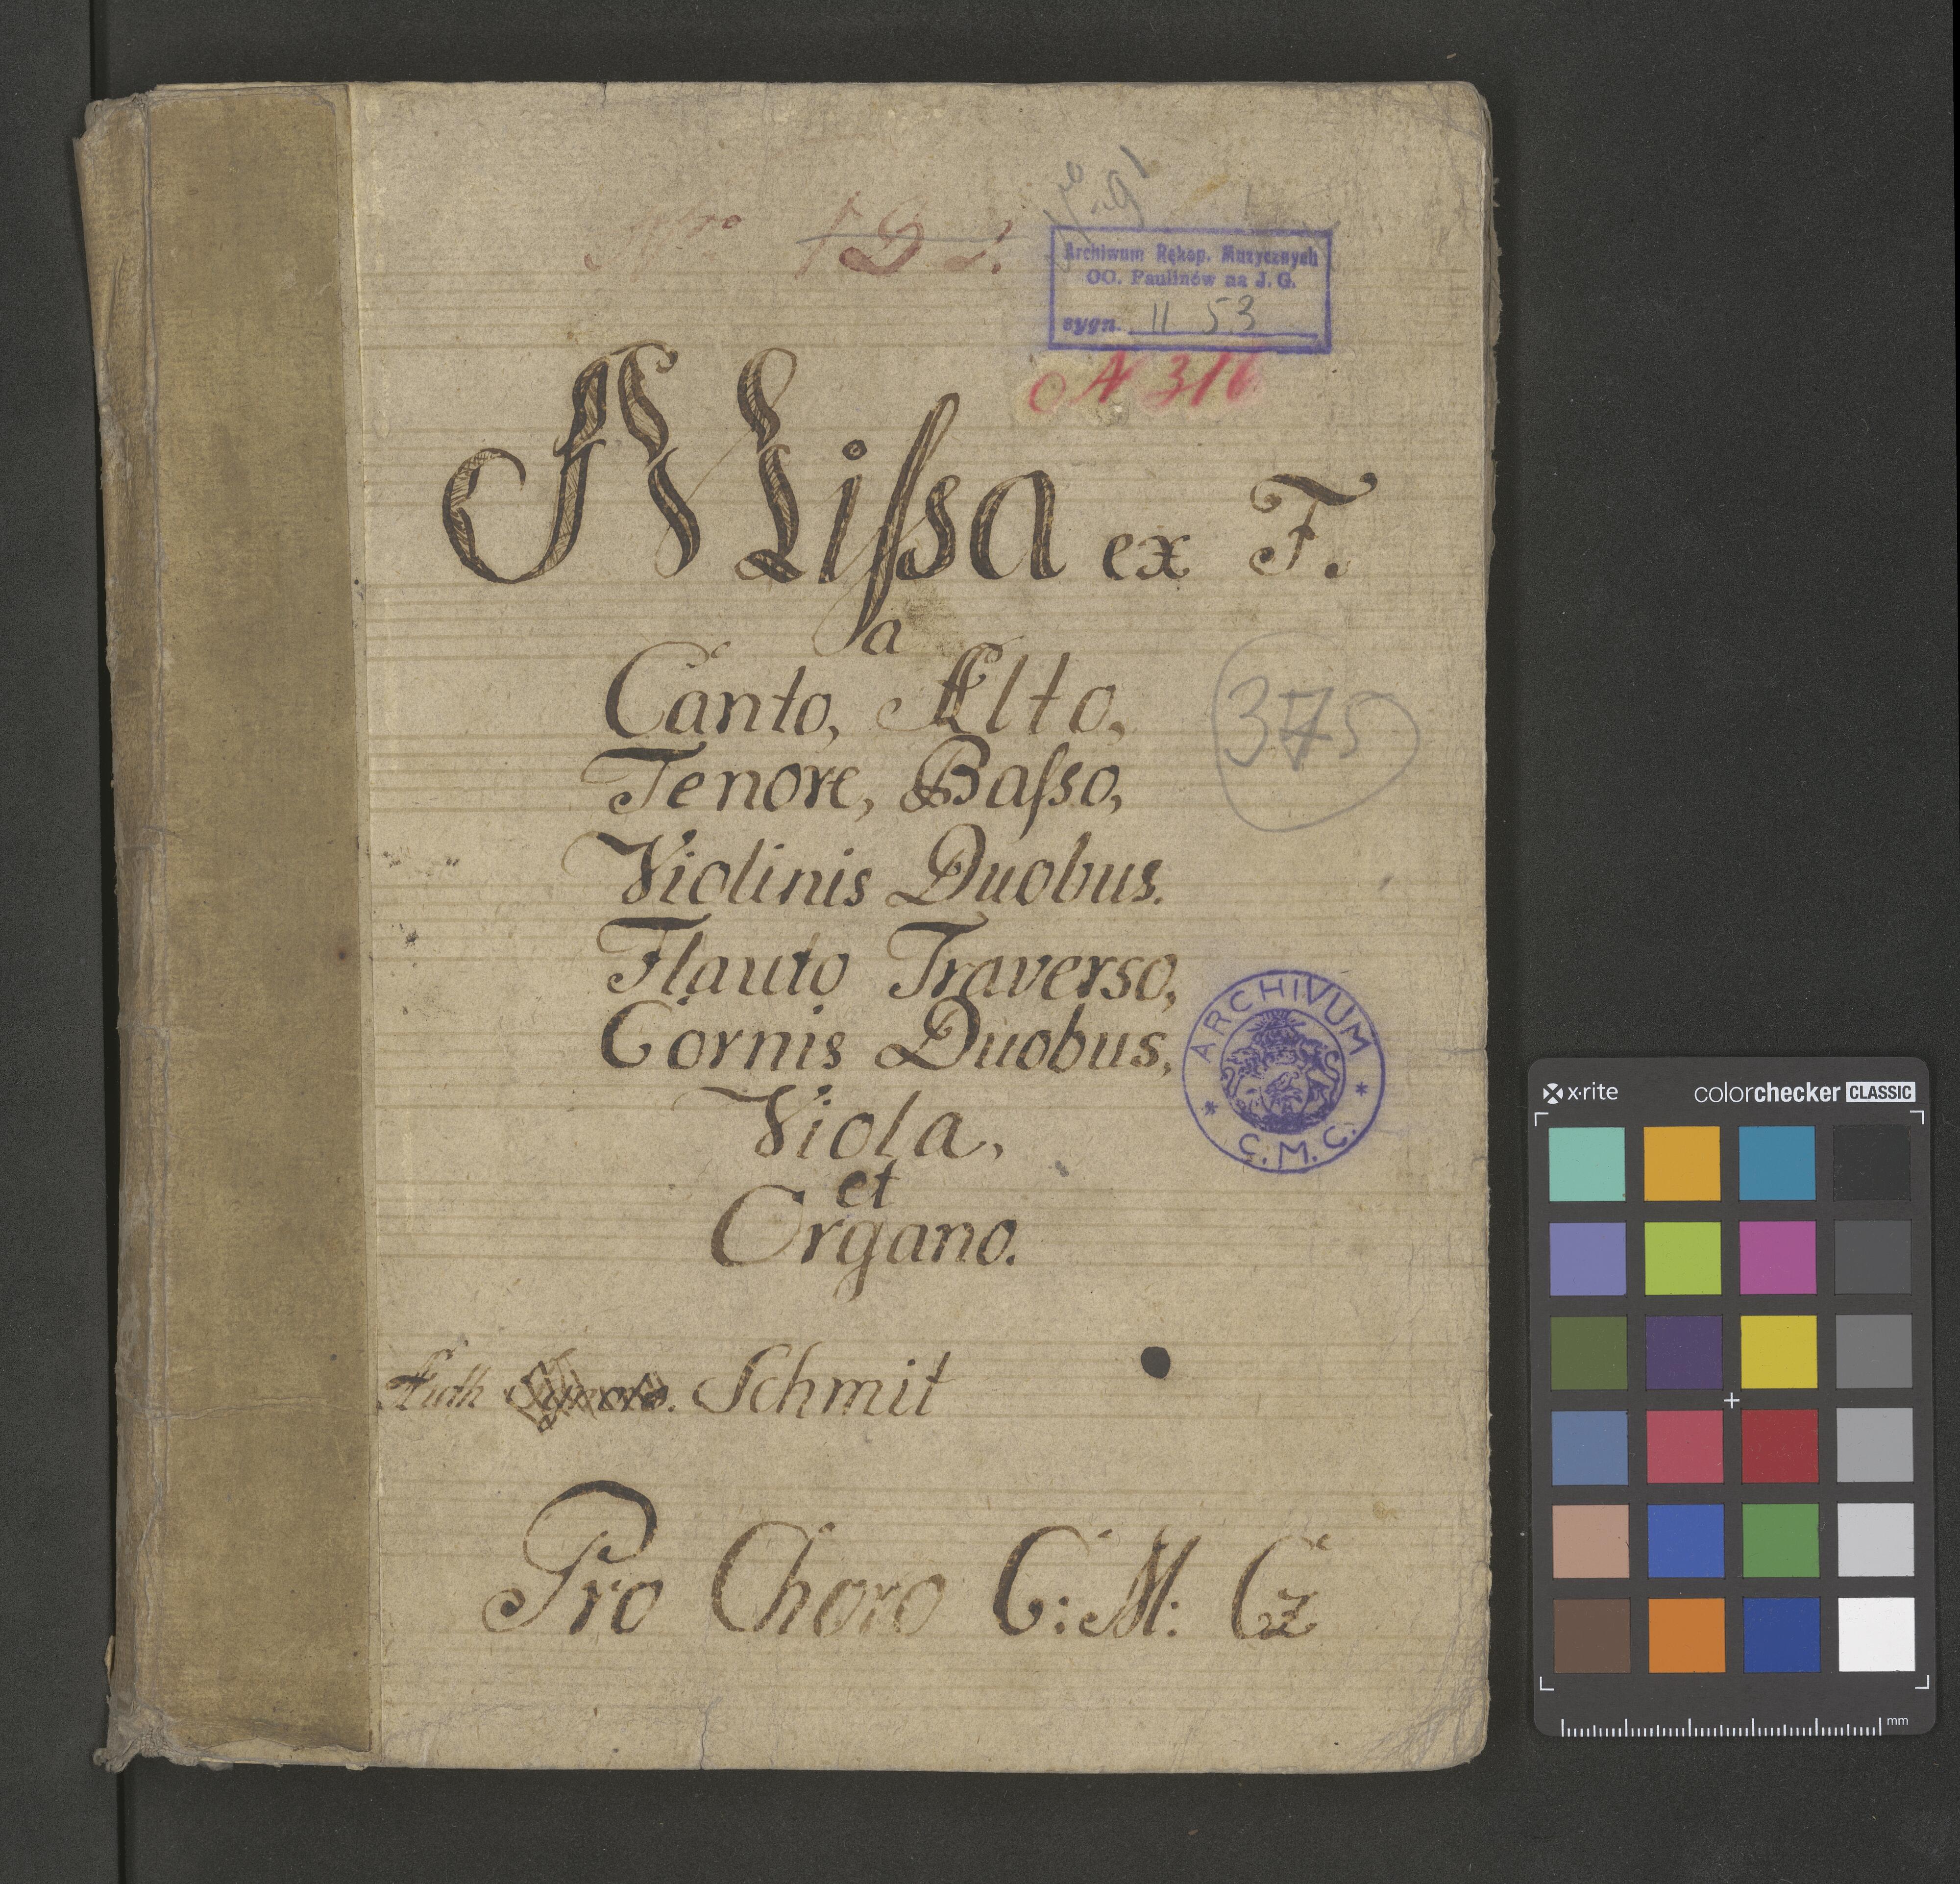 Nro
Archiwum Rękop. Muzycznych
OO. Paulinów na J. G.
sygn. II 53
N 316
Missa ex F.
a
Canto, Alto,
375
Tenore, Basso,
Violinis Duobus.
Flauto Traverso,
Cornis Duobus,
ARCHIVUM
C.M.C.
Viola,
et
Organo.
Auth Schmit
Pro Choro C: M: Cz
x·rite colorchecker CLASSIC
mm